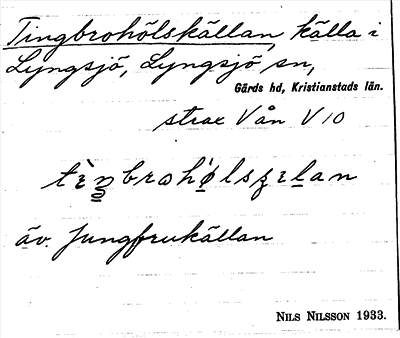 Tingbrohölskällan, källa i
Lyngsjö, Lyngsjö sn,
Gärds hd, Kristianstads län.
strax V ån V 10
äv. Jungfrukällan
NILS NILSSON 1933.